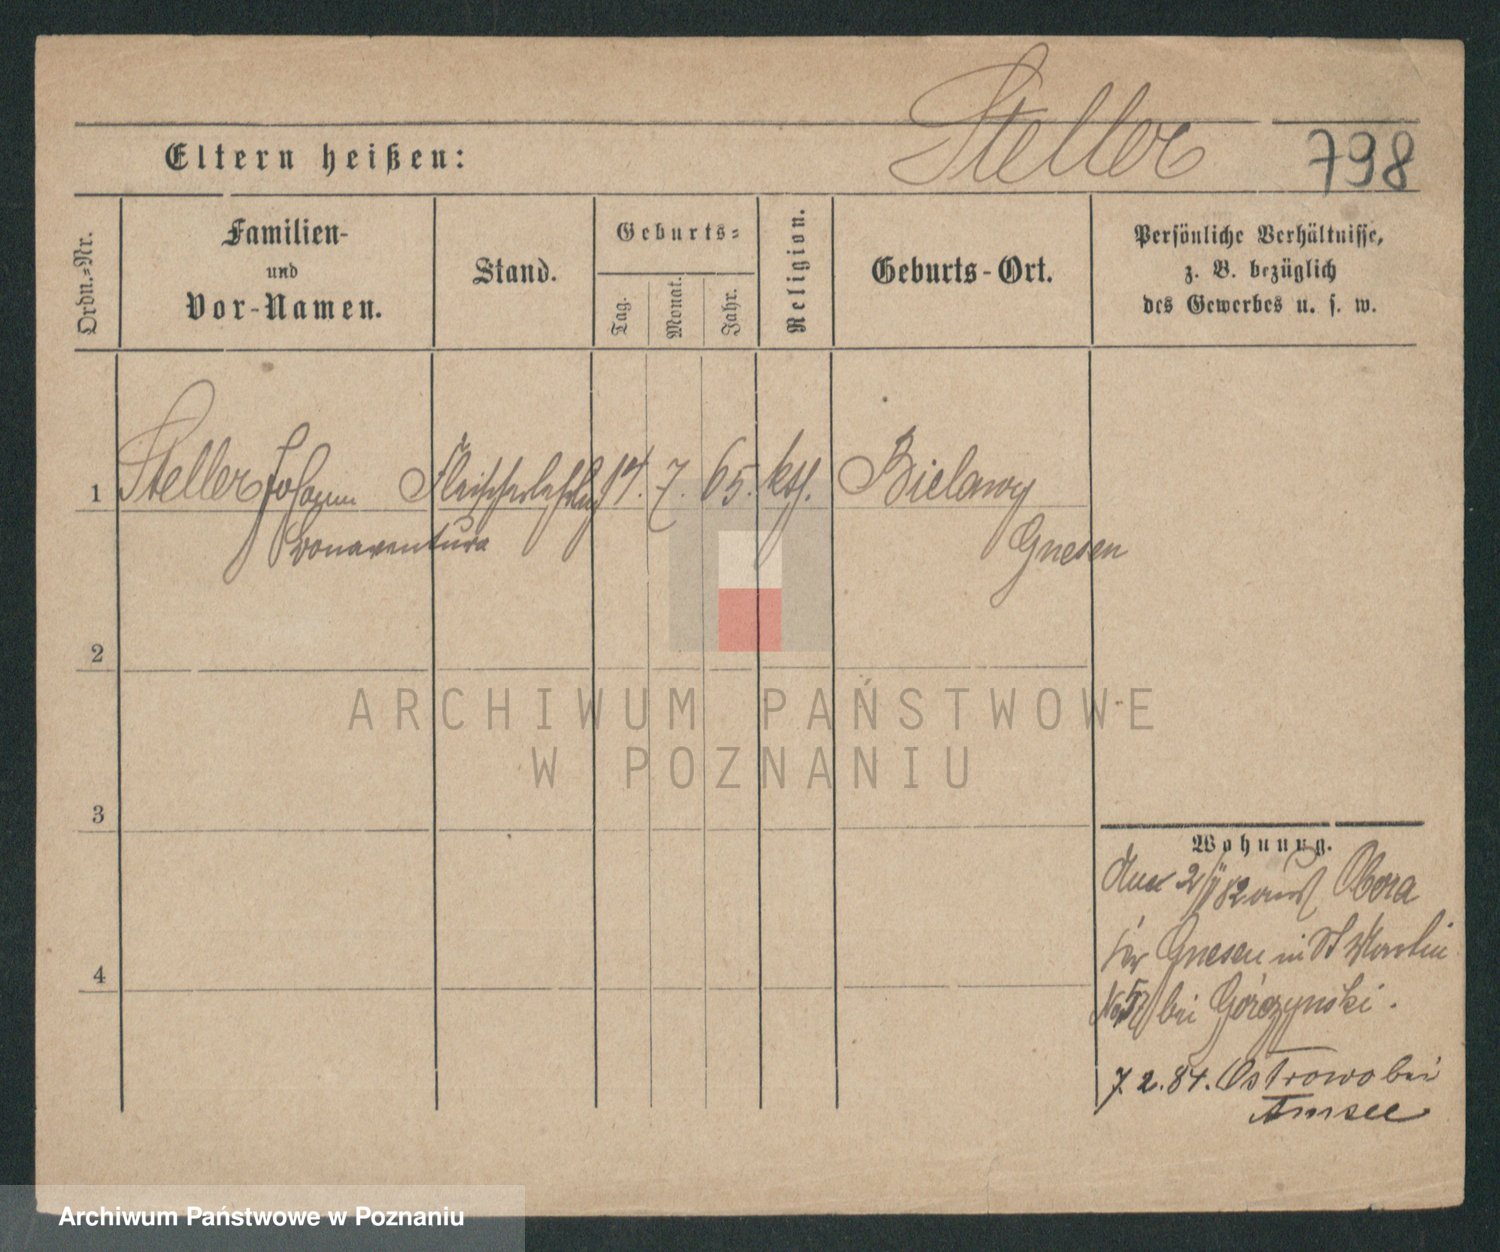 Steller
Eltern heißen:
798
Ordn.-Nr.
Familien-
und
Vor-Namen.
Stand.
Geburts-
Tag.
Monat.
Jahr.
Religion.
Geburts-Ort.
Persönliche Verhältnisse,
z. B. bezüglich
des Gewerbes u. s. w.
1 Steller Johann Fleischerlehrlg 14. 7. 65. kth. Bielawy
Bonaventura Gnesen
2
ARCHIWUM PAŃSTWOWE
W POZNANIU
3
Wohnung.
2/ 82 aus Obora
Gnesen in St Martin
No 57 bei Górczynski.
4
7. 2. 84. Ostrowo bei
Amsee
Archiwum Państwowe w Poznaniu